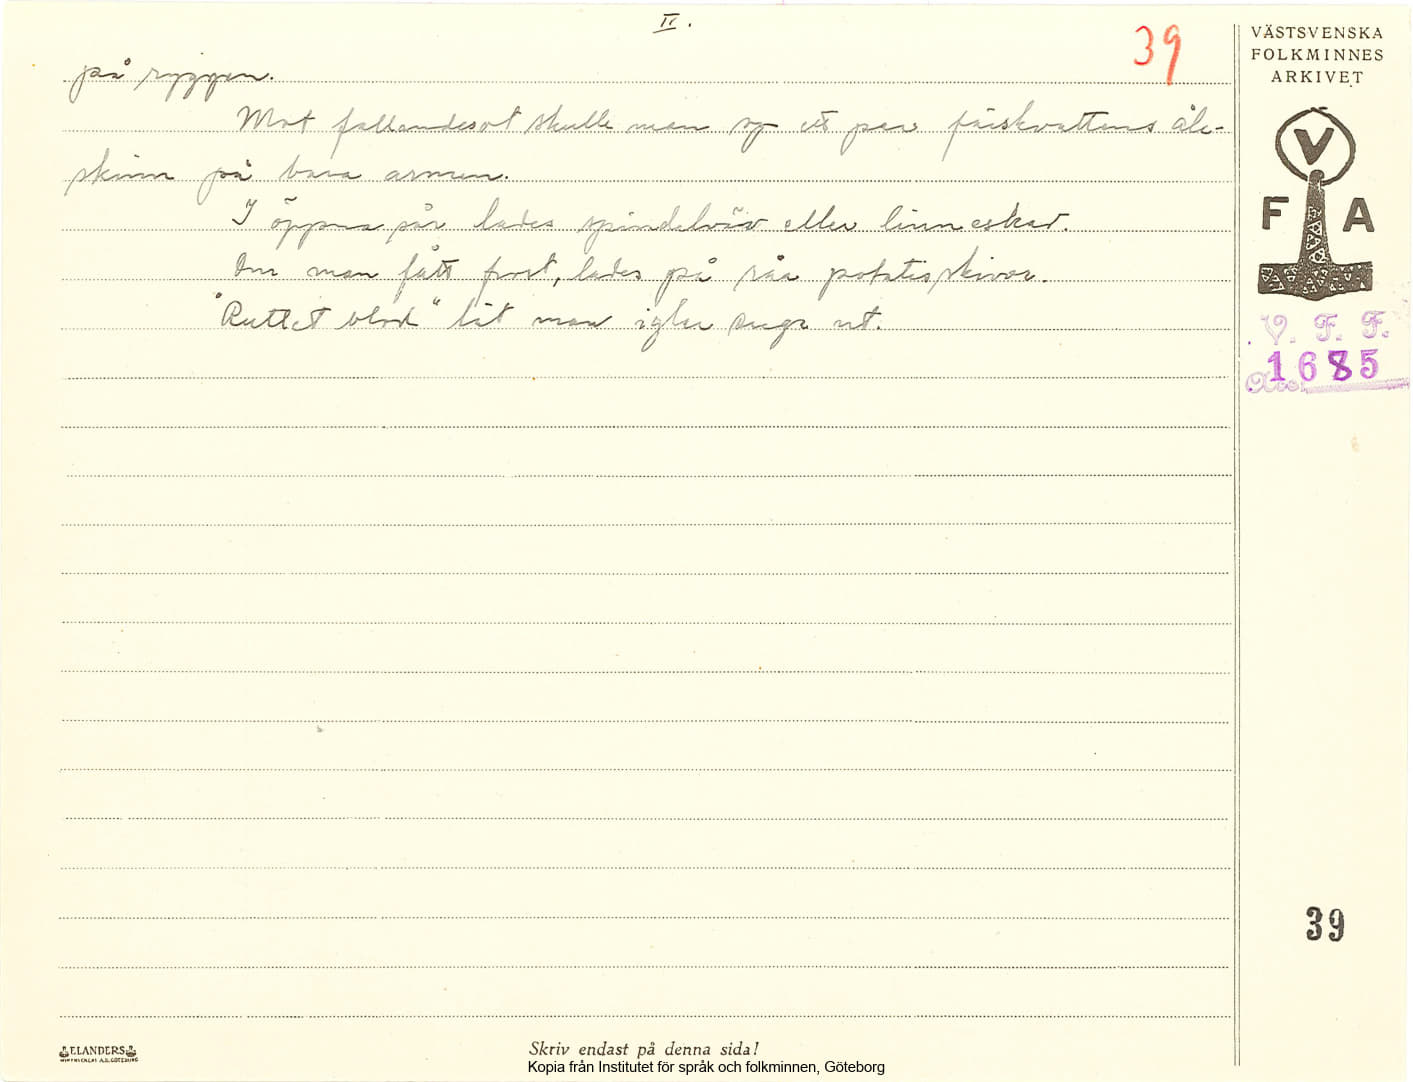 II.
39
på ryggen.
Mot fallandesot skulle man sy ett par färskvattens ål-
skinn på bara armen.
I öppna sår lades spindelväv eller linneskav.
Om man fått frost, lades på råa potatisskivor.
"Ruttet blod" lät man iglar suga ut.
VÄSTSVENSKA
FOLKMINNES
ARKIVET
V
F A
V. F. F.
1685
39
ELANDERS
Skriv endast på denna sida!
Kopia från Institutet för språk och folkminnen, Göteborg